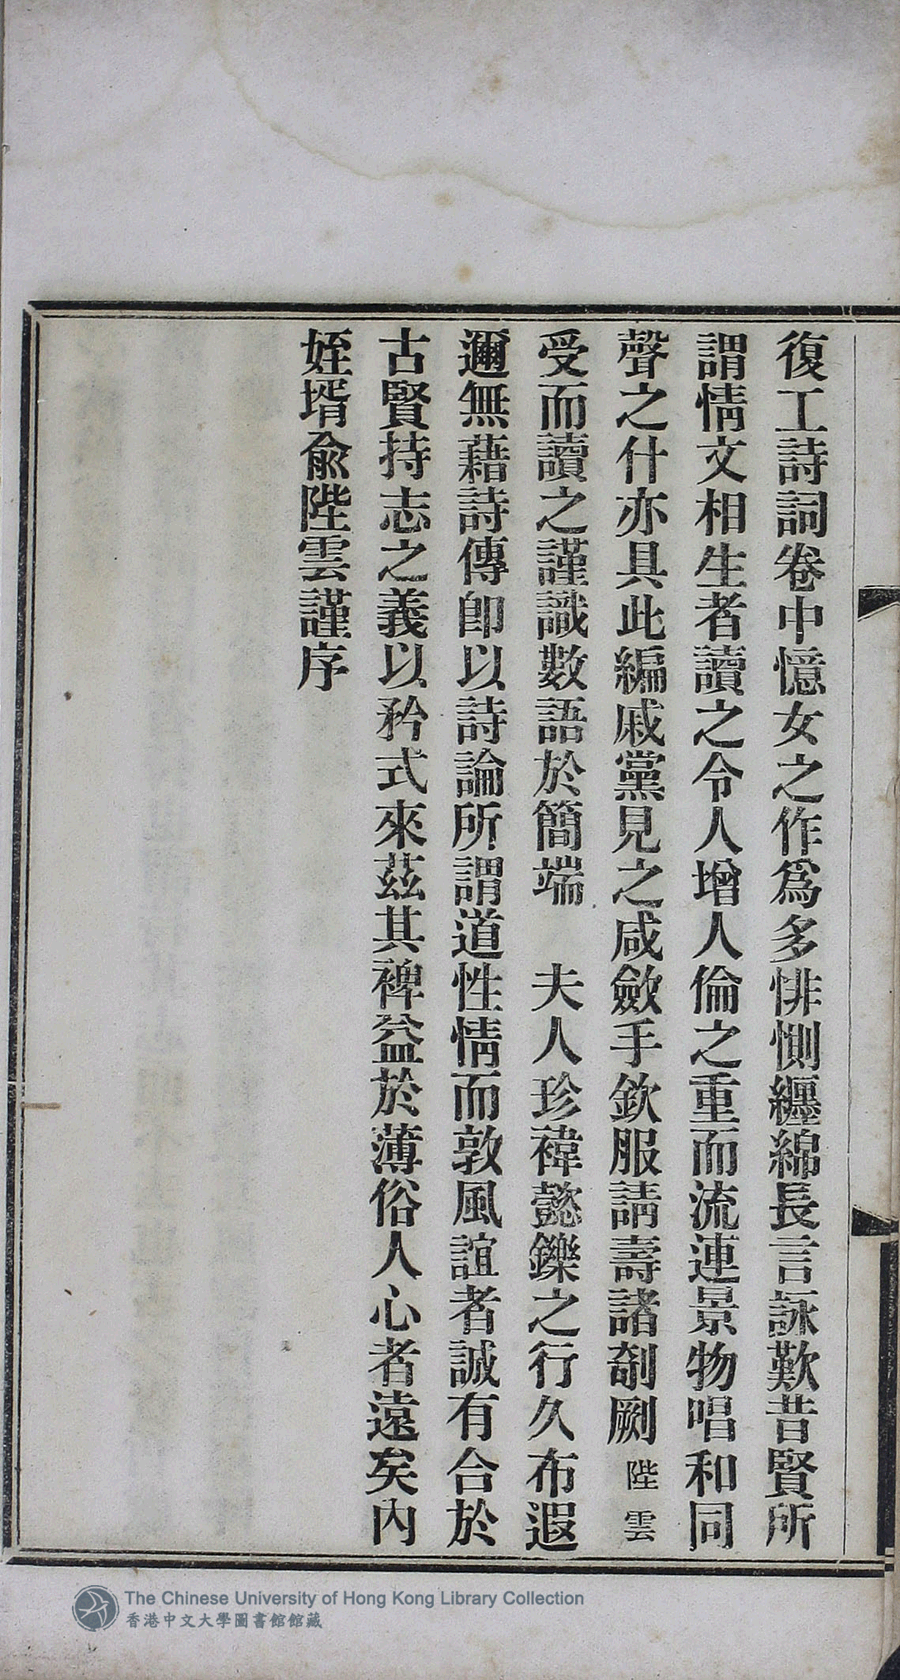 復工詩詞卷中憶女之作爲多悱惻纏綿長言詠歎昔賢所
謂情文相生者讀之令人增人倫之重而流連景物唱和同
聲之什亦具此編戚黨見之咸斂手欽服請壽諸剞劂陛雲
受而讀之謹識數語於簡端　夫人珍褘懿鑠之行久布遐
邇無藉詩傳即以詩論所謂道性情而敦風誼者誠有合於
古賢持志之義以矜式來茲其裨益於薄俗人心者遠矣內
姪壻俞陛雲謹序
The Chinese University of Hong Kong Library Collection
香港中文大學圖書館館藏